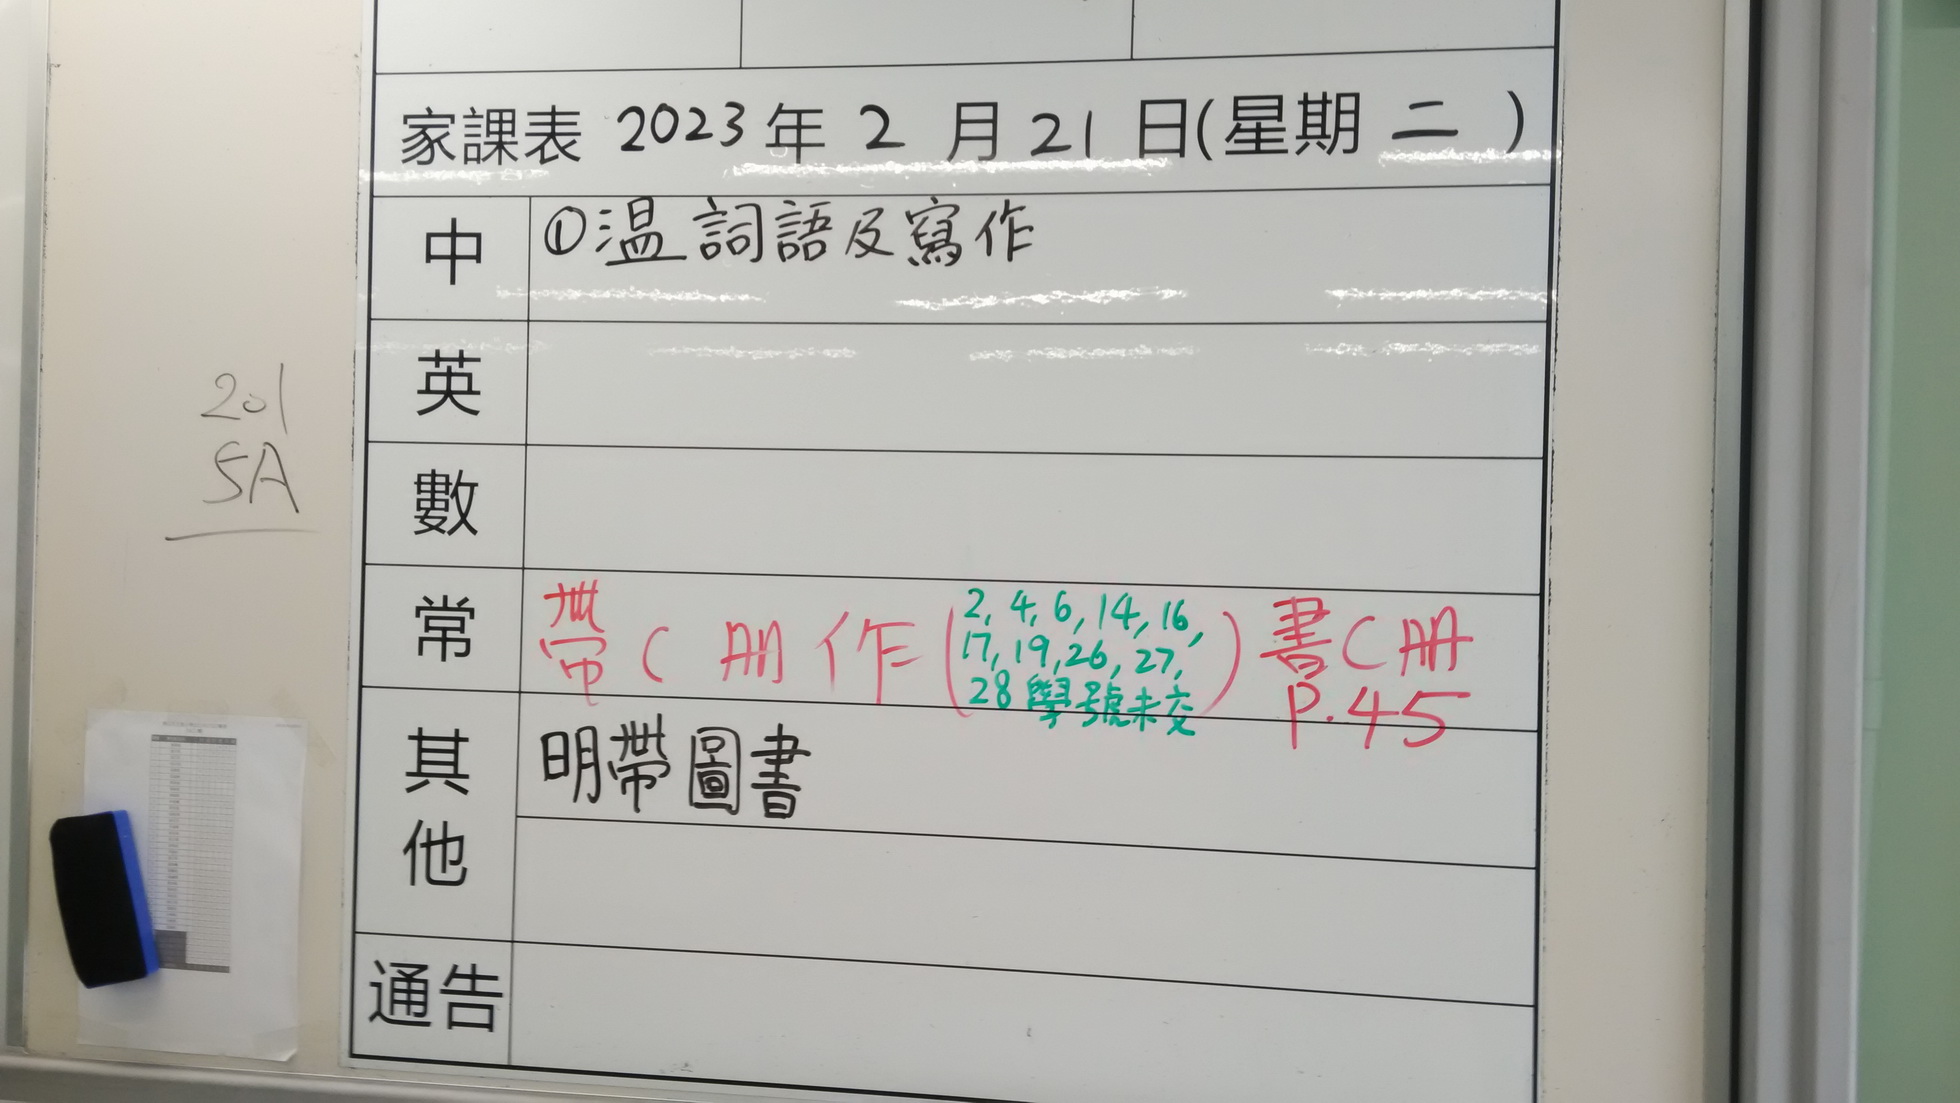 家課表 2023年 2 月 21 日(星期 二 )
中 ①温詞語及寫作
英
數
201
5A
常 帶C冊作(2, 4, 6, 14, 16, 17, 19, 26, 27, 28 學號未交) 書C冊 P.45
其他 明帶圖書
通告